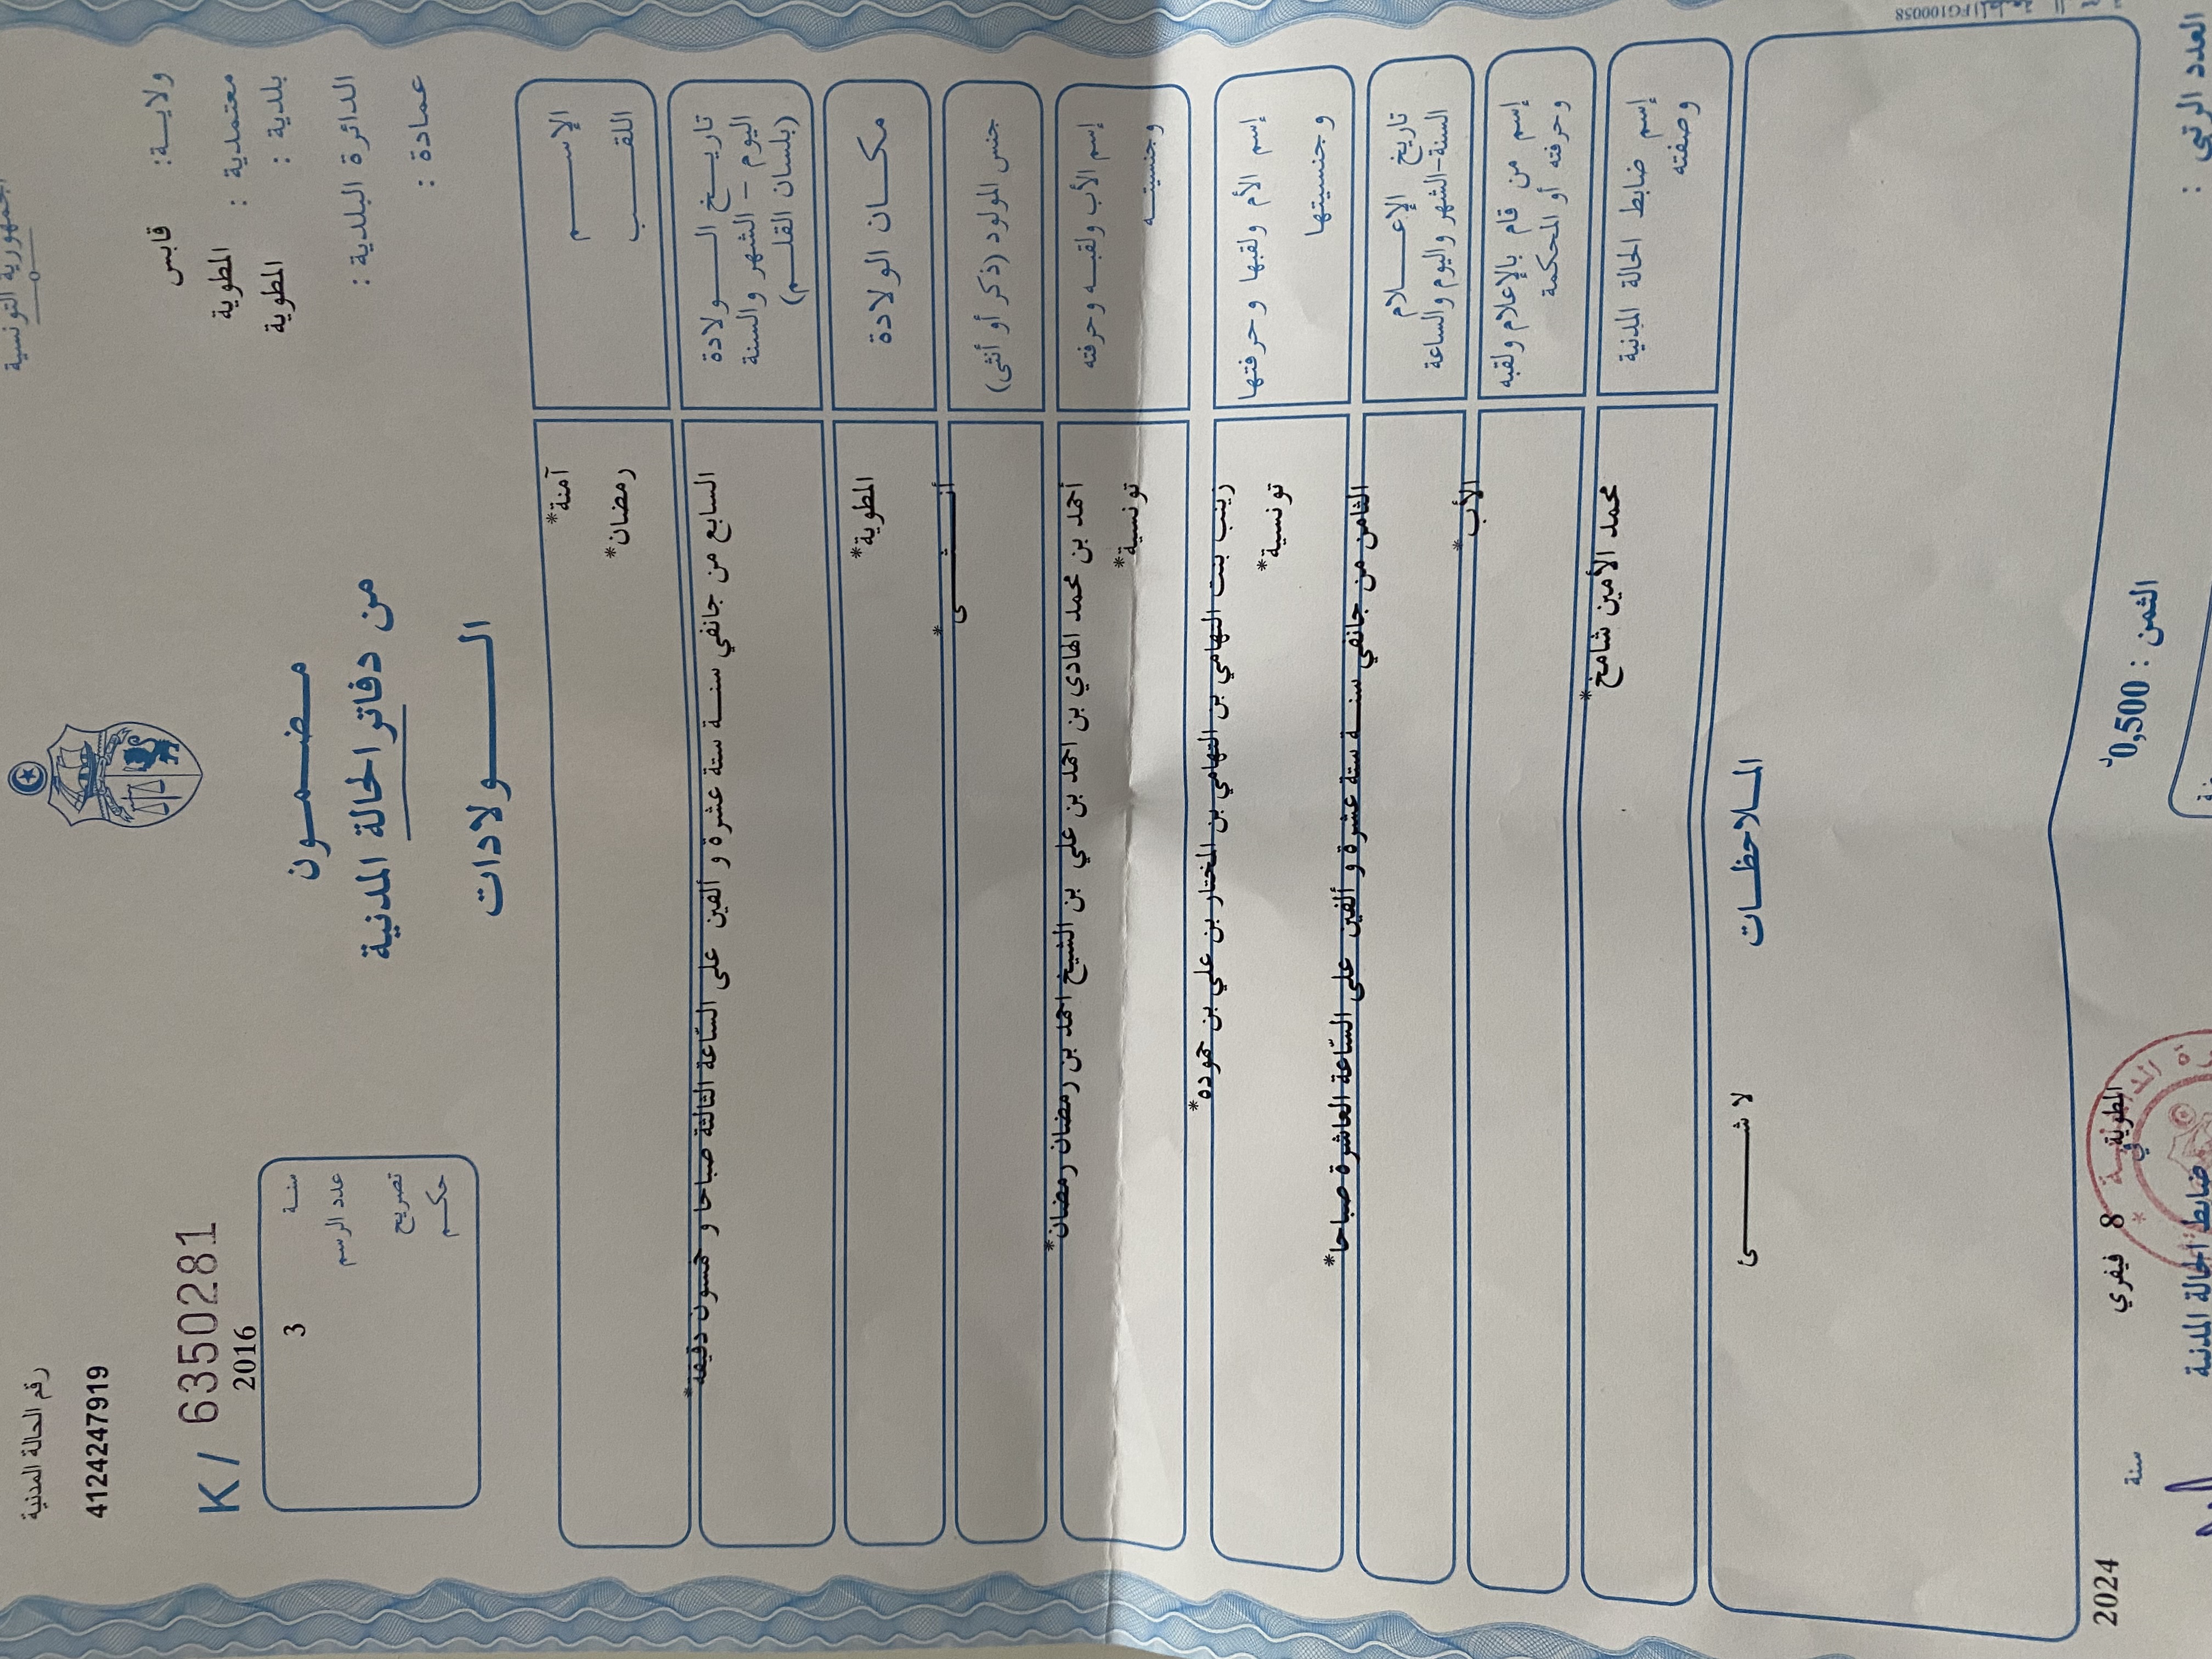 الجمهورية التونسية
رقم الحالة المدنية
41242247919
ولايـة: قابس
معتمدية : المطوية
بلدية : المطوية
الدائرة البلدية :
عمادة :
K / 6350281
2016 سنـة
3 عدد الرسم
تصريح
حكـم
مـضـمـون
من دفاتر الحالة المدنية
الـولادات
الإسـم آمنة*
اللقـب رمضان*
تاريـخ الـولادة
اليوم - الشهر والسنة
(بلسان القلـم)
السابع من جانفي سنـة ستة عشرة و ألفين على السّاعة الثالثة صباحا و خمسون دقيقة*
مكـان الولادة المطوية*
جنس المولود (ذكر أو أنثى) أنـثـى*
إسم الأب ولقبـه وحرفته أحمد بن محمد الهادي بن احمد بن علي بن الشيخ احمد بن رمضان رمضان*
وجنسيتـه تونسية*
إسم الأم ولقبها وحرفتها زينب بنت التهامي بن التهامي بن المختار بن علي بن حموده*
وجنسيتها تونسية*
تاريخ الإعـلام
السنة-الشهر واليوم والساعة
الثامن من جانفي سنـة ستة عشرة و ألفين على السّاعة العاشرة صباحا*
إسم من قام بالإعلام ولقبه
وحرفته أو المحكمة
الأب*
إسم ضابط الحالة المدنية
وصفته
محمد الأمين شامخ*
المـلاحظـات
لا شـئ
FG100058
المطوية في 8 فيفري سنة 2024
ضابط الحالة المدنية
الثمن : 0,500د
العدد الرتبي :